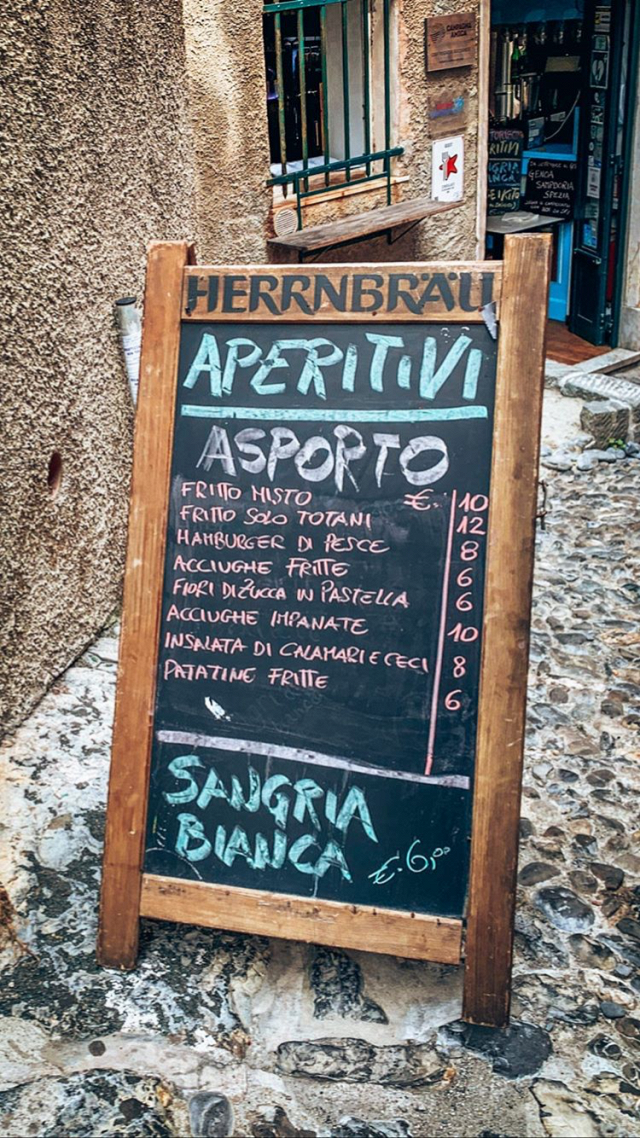 CAMPAGNA
AMICA
APERITIVI
BIANCA
GENOA
SAMPDORIA
SPEZIA
HERRNBRÄU
APERITIVI
ASPORTO
FRITTO MISTO €. 10
FRITTO SOLO TOTANI 12
HAMBURGER DI PESCE 8
ACCIUGHE FRITTE 6
FIORI DI ZUCCA IN PASTELLA 6
ACCIUGHE IMPANATE 10
INSALATA DI CALAMARI E CECI 8
PATATINE FRITTE 6
SANGRIA
BIANCA €. 6,00